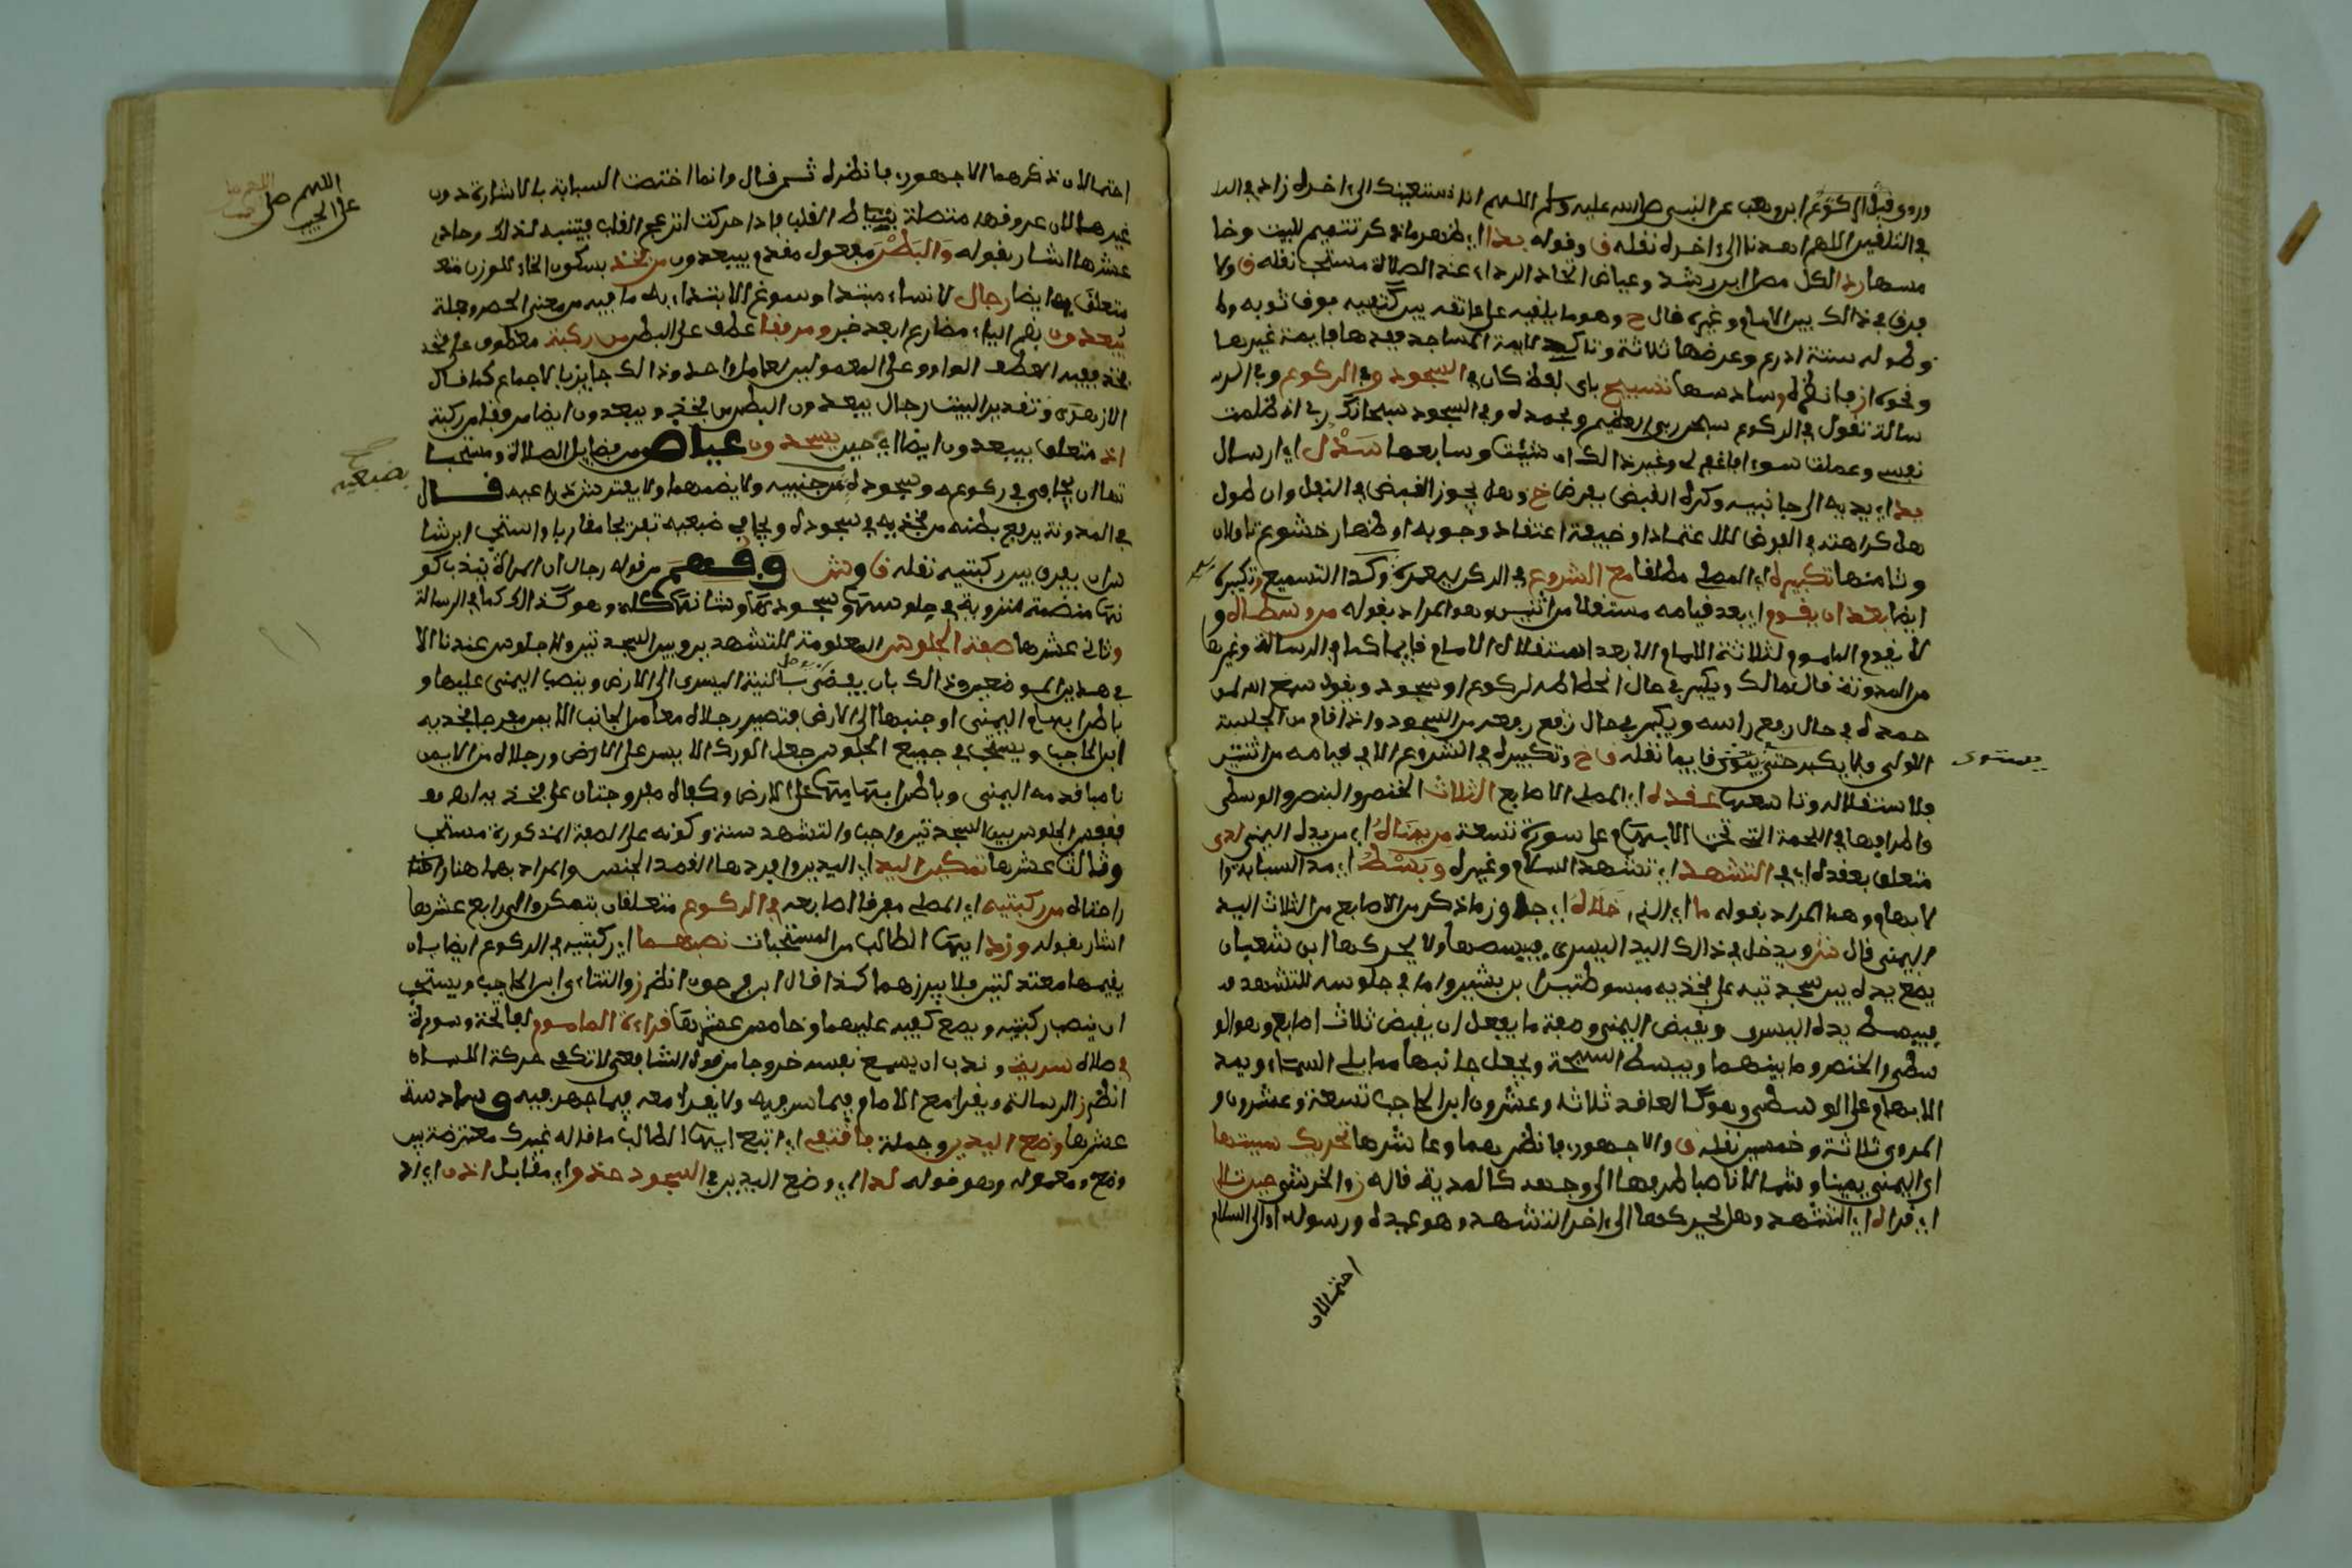 وروى قبل الركوع ابن وهب عن النبي صلى الله عليه وسلم اللهم انا نستعينك الى اخره زاد في
في التلقين اللهم اهدنا الى اخره نقله ق وقوله بدا اي ظهر ما ذكر تتميم للبيت وخا
مسها ردا لكل مصل ابن رشد وعياض اتخاذ الرداء عند الصلاة مستحب نقله ق ولا
فرق في ذالك بين الامام وغيره قال ح وهو ما يلقيه على عاتقه بين كتفيه فوق ثوبه
وطوله ستة اذرع وعرضها ثلاثة وتاكيد لايمة المساجد فبعدها فايمة غيرها
ونحوه از فانظره وسادسها تسبيح باي لفظ كان في السجود وفي الركوع وفي الر
سالة تقول في الركوع سبحن ربي العظيم وبحمده وفي السجود سبحانك ربي اني ظلمت
نفسي وعملت سوءا فاغفر لي وغير ذالك ان شئت وسابعها سدل اي ارسال
يد اي يديه الى جانبيه وكره القبض بفرض خ وهل يجوز القبض في النفل وان طول
هل كراهته في الفرض للاعتماد او خيفة اعتقاد وجوبه او اظهار خشوع تاويلان
وثامنها تكبيره اي المصلي مطلقا مع الشروع في الركن يعمره وكذا التسميع وتكبيره
ايضا بعد ان يقوم اي بعد قيامه مستقلا من اثنين وهو المراد بقوله من وسطاه و
لا يقوم الماموم لثلاثة الامام الا بعد استقلال الامام قايما كما في الرسالة وغيرها
من المدونة قال مالك ويكبر في حال انحطاطه لركوع او سجود ويقول سمع الله لمن
حمده في حال رفع راسه ويكبر في حال رفع رفعه من السجود واذا قام من الجلسة
الاولى فلا يكبر حتى يستوي قايما نقله ق خ وتكبيره في الشروع الا في قيامه من اثنتين
فلاستقلاله وتاسعها عقده اي المصلي الاصابع الثلاث الخنصر والبنصر والوسطى
واطرافها في اللحمة التي تحت الابهام على صورة تسعة من يمناه اي من يده اليمنى لدى
متعلق بعقده اي في التشهد اي تشهد السلام وغيره وبسط اي مد السبابة وا
لابهام وهما المراد بقوله ما اي الذي خلاه اي جاوز ما ذكر من الاصابع من الثلاث اليد
اليمنى قال ش ويدخل في ذالك اليد اليسرى فيبسطها ولا يحركها ابن شعبان
يضع يده بين سجدتيه على فخذيه مبسوطتين ابن بشير واما في جلوسه للتشهد
فيبسط يده اليسرى ويقبض اليمنى وصفة ما يفعل ان يقبض ثلاث اصابع وهو الو
سطى والخنصر وما بينهما ويبسط المسبحة ويجعل جانبها مما يلي السماء ويمد
الابهام على الوسطى وهو كالعاقد ثلاثة وعشرون ابن الحاجب تسعة وعشرون و
المروي ثلاثة وخمسين نقله ق والاجهوري فانظرهما وعاشرها تحريك سبابتها
اي اليمنى يمينا وشمالا ناصبا طرفها الى وجهه كالمدية قاله ز والخرشي حين تلاه
اي قراه اي التشهد وهل يحركها الى اخر التشهد وهو عبده ورسوله او الى السلام
احتمالان
يستوى
احتمالان ذكرهما الاجهوري فانظره ثم قال وانما اختصت السبابة بالاشارة دون
غيرها لان عروقها متصلة بنياط القلب فاذا حركت انزعج القلب فيتنبه لذلك وحادي
عشرها اشار بقوله والبطن مفعول مقدم بيبعدون من فخذ بسكون الخاء للوزن متعـ
متعلق به ايضا رجال لا نساء مبتدا وسوغ الابتداء به ما فيه من معنى الحصر وجملة
يبعدون بضم الياء مضارع ابعد خبر ومرفقا عطف على البطن من ركبة معطوف على فخذ
فخذ ففيه العطف بالواو على المعمولين لعامل واحد وذالك جايز بالاجماع كما قال
الازهري وتقدير البيت رجال يبعدون البطن من فخذ ويبعدون ايضا مرفقا من ركبة
اذ متعلق بيبعدون ايضا اي حين يسجدون عياض من فضايل الصلاة ومستحبا
تها ان يجافي في ركوعه وسجوده عن جنبيه ولا يضمهما ولا يفترش ذراعيه قال
في المدونة يرفع بطنه عن فخذيه في سجوده ويجافي ضبعيه تفريجا مقاربا واستحب ابن شا
س ان يفرق بين ركبتيه نقله ق وش وفهم من قوله رجال ان المراة يندب كو
نها منضمة منزوية في جلوسها وسجودها وشانها كله وهو كذالك كما في الرسالة
وثاني عشرها صفة الجلوس المعلومة للتشهدين وبين السجدتين ولا جلوس عندنا الا
في هذين الموضعين وذالك بان يفضي بالية اليسرى الى الارض وينصب اليمنى عليها و
باطن ابهام اليمنى او جنبها الى الارض فتصير رجلاه معا من الجانب الايمن مفرجا فخذيه
ابن الحاجب ويستحب في جميع الجلوس جعل الورك الايسر على الارض ورجلاه من الايمن
ناصبا قدمه اليمنى وباطن ابهامها على الارض وكفاه مفروجتان على فخذيه
فنفس الجلوس بين السجدتين واجب والتشهد سنة وكونه على الصفة المذكورة مستحب
وثالث عشرها تمكين اليد اي اليدين وافردها لقصد الجنس والمراد بهما هنا راحتا
راحتاه من ركبتيه اي المصلي مفرقا اصابعه في الركوع متعلقان بتمكن والرابع عشرها
اشار بقوله وزد ايها الطالب من المستحبات نصبهما اي ركبتيه في الركوع ايضا بان
يقيمها معتدلتين فلا يبرزهما كذا قال ابن فرحون انظر ز والتتائي ابن الحاجب ويستحب
ان ينصب ركبتيه ويضع كفيه عليهما وخامس عشرها قراءة الماموم لفاتحة وسورة
في صلاة سرية وندب ان يسمع نفسه خروجا من قول الشافعي لا تكفي حركة اللسان
انظر ز الرسالة ويقرا مع الامام فيما اسر فيه ولا يقرا معه فيما جهر فيه وسادسة
عشرها وضع اليدين وجملة فاقتفي اي اتبع ايها الطالب ما قاله غيرك معترضة بين
وضع ومعموله وهو قوله لدا اي وضع اليدين في السجود حذو اي مقابل اذن اي
اللهم صل
على الحبيب
ضبعيه